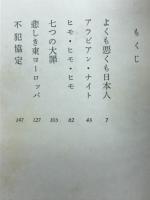 もくじ
よくも悪くも日本人 7
アラビアン・ナイト 45
ヒモ・ヒモ・ヒモ 82
七つの大罪 103
悲しき東ヨーロッパ 127
不犯協定 147